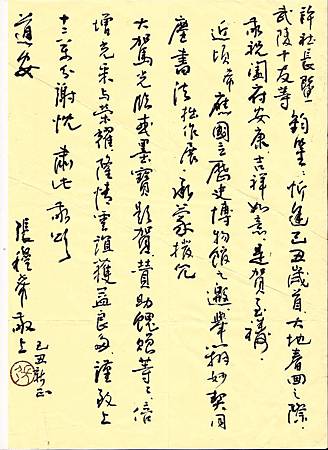 許社長暨
武陵十友等 鈞鑒:忻逢己丑歲首大地春回之際、
敬祝闔府安康、吉祥如意 是賀至禱
近頃 希應國立歷史博物館之邀舉辦妙契同
塵書法拙作展、承蒙撥冗
大駕光臨或墨寶題賀贊助等等、倍
增光采与榮耀、隆情雲誼獲益良多、謹致上
十二萬分謝忱 肅此 敬頌
道安
張穆希敬上
己丑新正